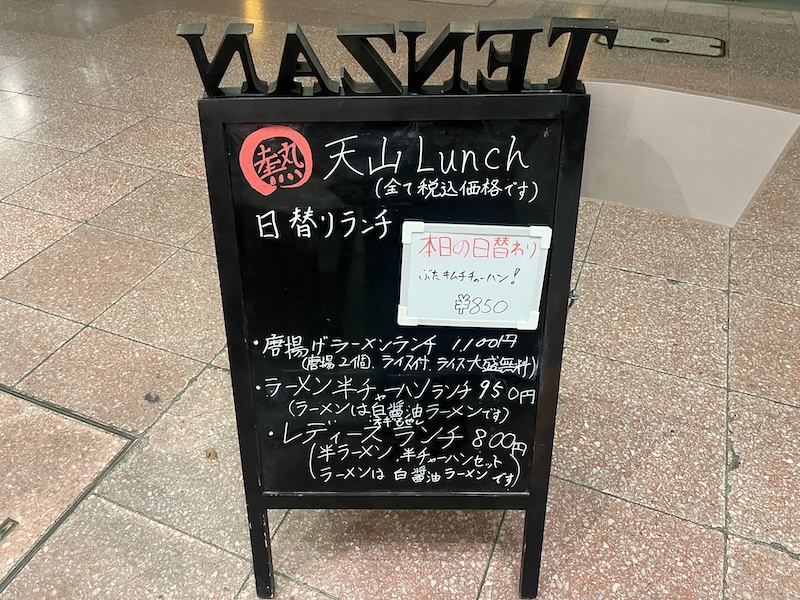 TENZAN
熱 天山 Lunch
(全て税込価格です)
日替りランチ
本日の日替わり
ぶたキムチチャーハン!
¥850
・唐揚げラーメンランチ 1,100円
(唐揚2個、ライス付、ライス大盛無料)
・ラーメン半チャーハンランチ 950円
(ラーメンは白醤油ラーメンです)
・レディースランチ 800円
(半ラーメン、半チャーハンセット
ラーメンは白醤油ラーメンです)